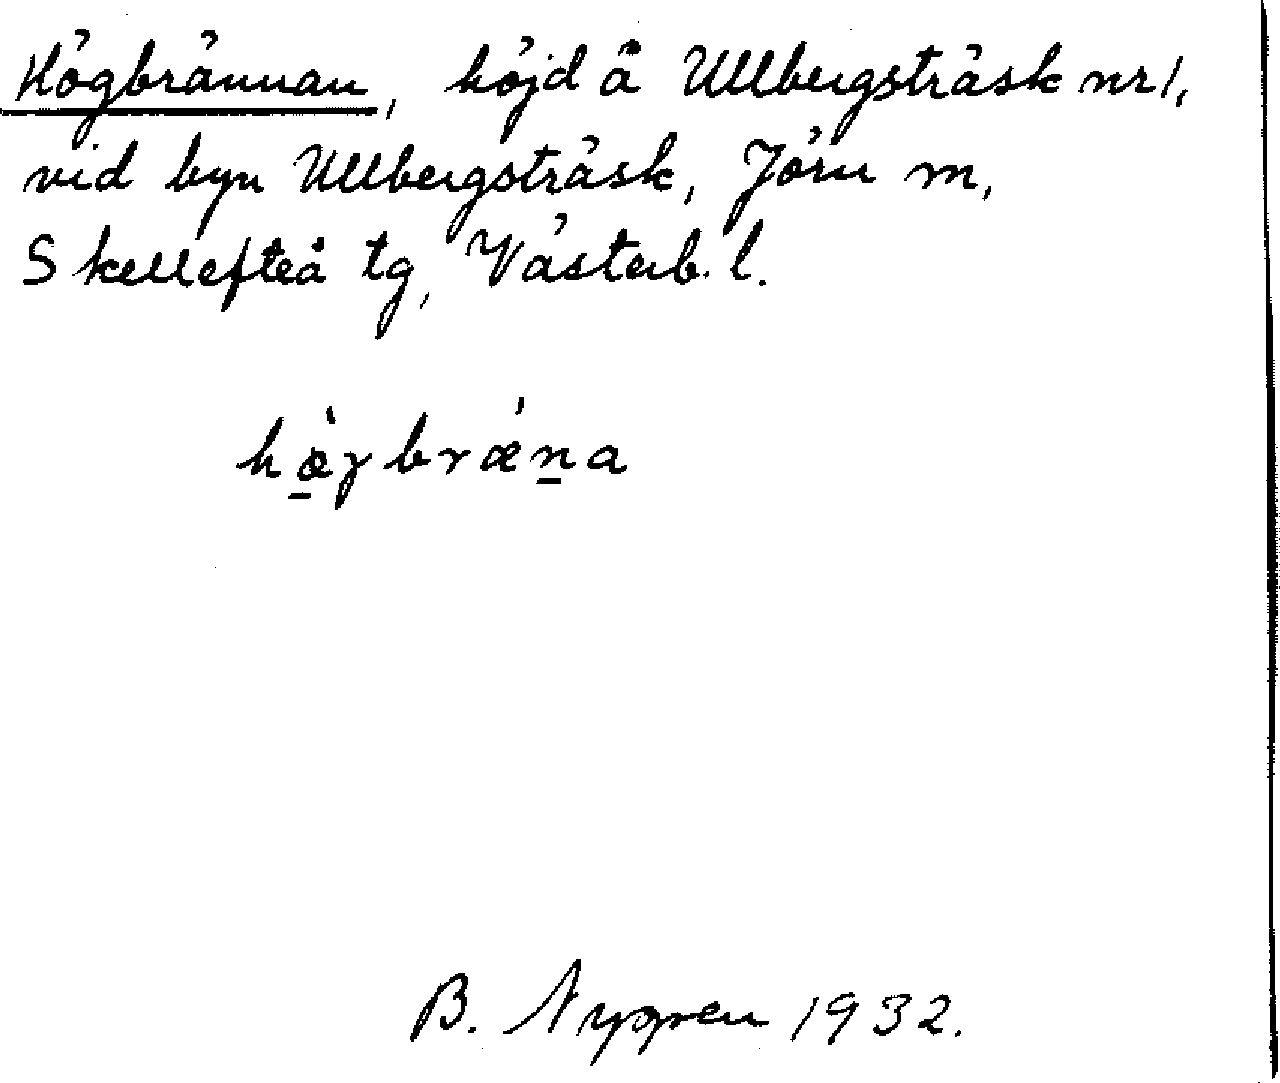 Högbrännan, höjd å Ullbergsträsk nr 1,
vid byn Ullbergsträsk, Jörn m,
Skellefteå tg, Västerb. l.
hæ̠̀γbrǽn̠a
B. Nygren 1932.